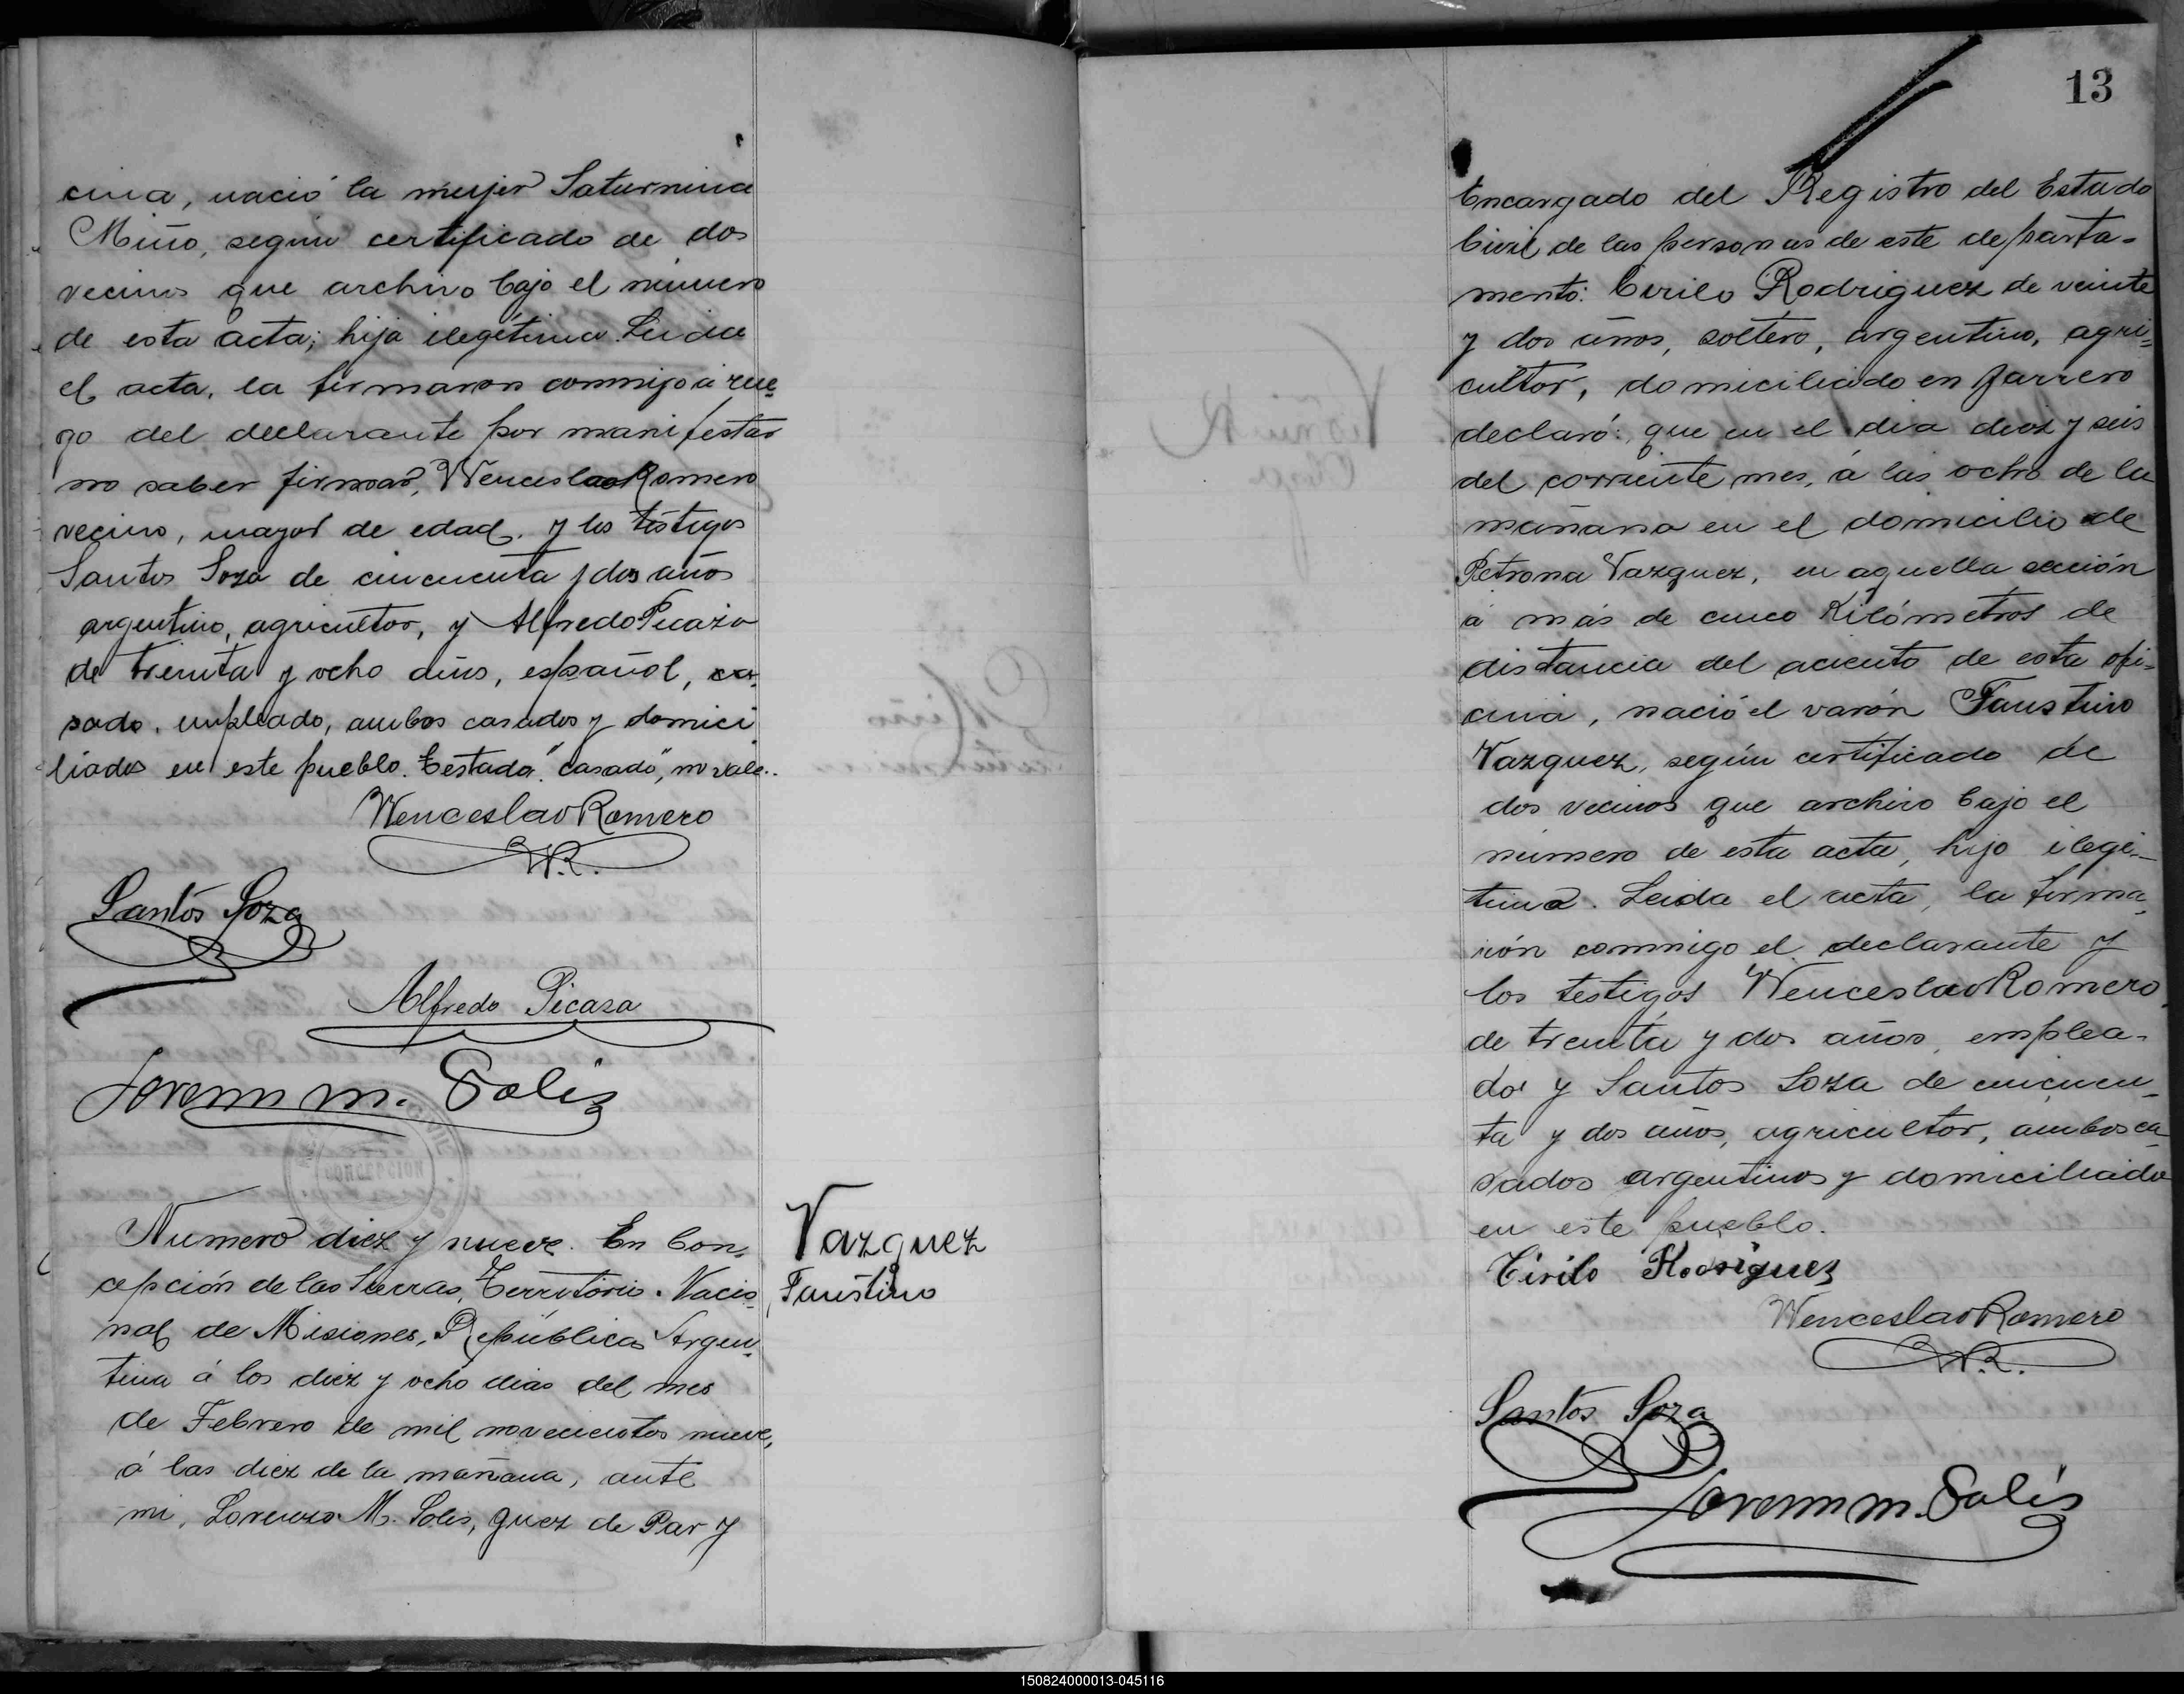 cina, nació la mujer Saturnina
Miño, según certificado de dos
vecinos que archivo bajo el número
de esta acta; hija ilegítima. Leida
el acta, la firmaron conmigo á rue-
go del declarante por manifestar
no saber firmar, Wenceslao Romero
vecino, mayor de edad, y los testigos
Santos Soza de cincuenta y dos años
argentino, agricultor, y Alfredo Picaza
de treinta y ocho años, español, ca-
sado, empleado, ambos casados y domici
liados en este pueblo. Testado: "casado", no vale.
Wenceslao Romero
W.R.
Santos Soza
Alfredo Picasa
Lorenzo M. Solis
CONCEPCION
Numero diez y nueve. En Con-
cepción de las Sierras, Territorio Nacio-
nal de Misiones, República Argen-
tina á los diez y ocho dias del mes
de Febrero de mil novecientos nueve,
á las diez de la mañana, ante
mi, Lorenzo M. Solis, Juez de Paz y
Vazquez
Faustino
13
Encargado del Registro del Estado
Civil de las personas de este departa-
mento: Cirilo Rodriguez de veinte
y dos años, soltero, argentino, agri-
cultor, domiciliado en Jarrero
declaró: que en el dia diez y seis
del corriente mes, á las ocho de la
mañana en el domicilio de
Petrona Vazquez, en aquella sección
á más de cinco Kilómetros de
distancia del aciento de esta ofi-
cina, nació el varón Faustino
Vazquez, según certificado de
dos vecinos que archivo bajo el
número de esta acta, hijo ilegi-
timo. Leida el acta, la firma-
rón conmigo el declarante y
los testigos Wenceslao Romero,
de treinta y dos años, emplea-
do y Santos Soza de cincuen-
ta y dos años, agricultor, ambos ca-
sados argentinos y domiciliado
en este pueblo.
Cirilo Rodriguez
Wenceslao Romero
W.R.
Santos Soza
Lorenzo M. Solis
150824000013-045116